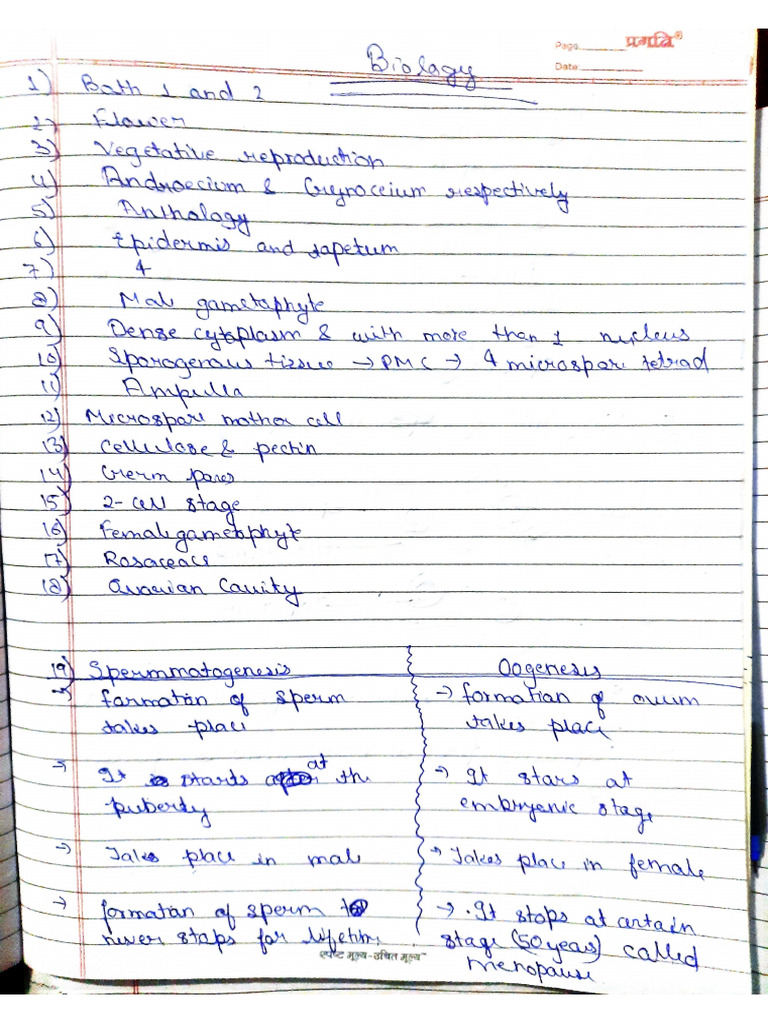 Page
प्रगति®
Date
Biology
1) Both 1 and 2
2) Flower
3) Vegetative reproduction
4) Androecium & Gynoceium respectively
5) Anthology
6) Epidermis and tapetum
7) 4
8) Male gametophyte
9) Dense cytoplasm & with more than 1 nucleus
10) Sporogenous tissue → PMC → 4 microspore tetrad
11) Ampulla
12) Microspore mother cell
13) Cellulose & pectin
14) Germ pores
15) 2-cell stage
16) Female gametophyte
17) Rosaceace
18) Ovarian Cavity
19) Spermmatogenesis
→ formation of sperm
takes place
→ It starts at the
puberty
→ Takes place in male
→ formation of sperm
never stops for lifetime
Oogenesis
→ formation of ovum
takes place
→ It stars at
embryenic stage
→ Takes place in female
→ It stops at certain
stage (50 years) called
menopause
स्पष्ट मूल्य-उचित मूल्य